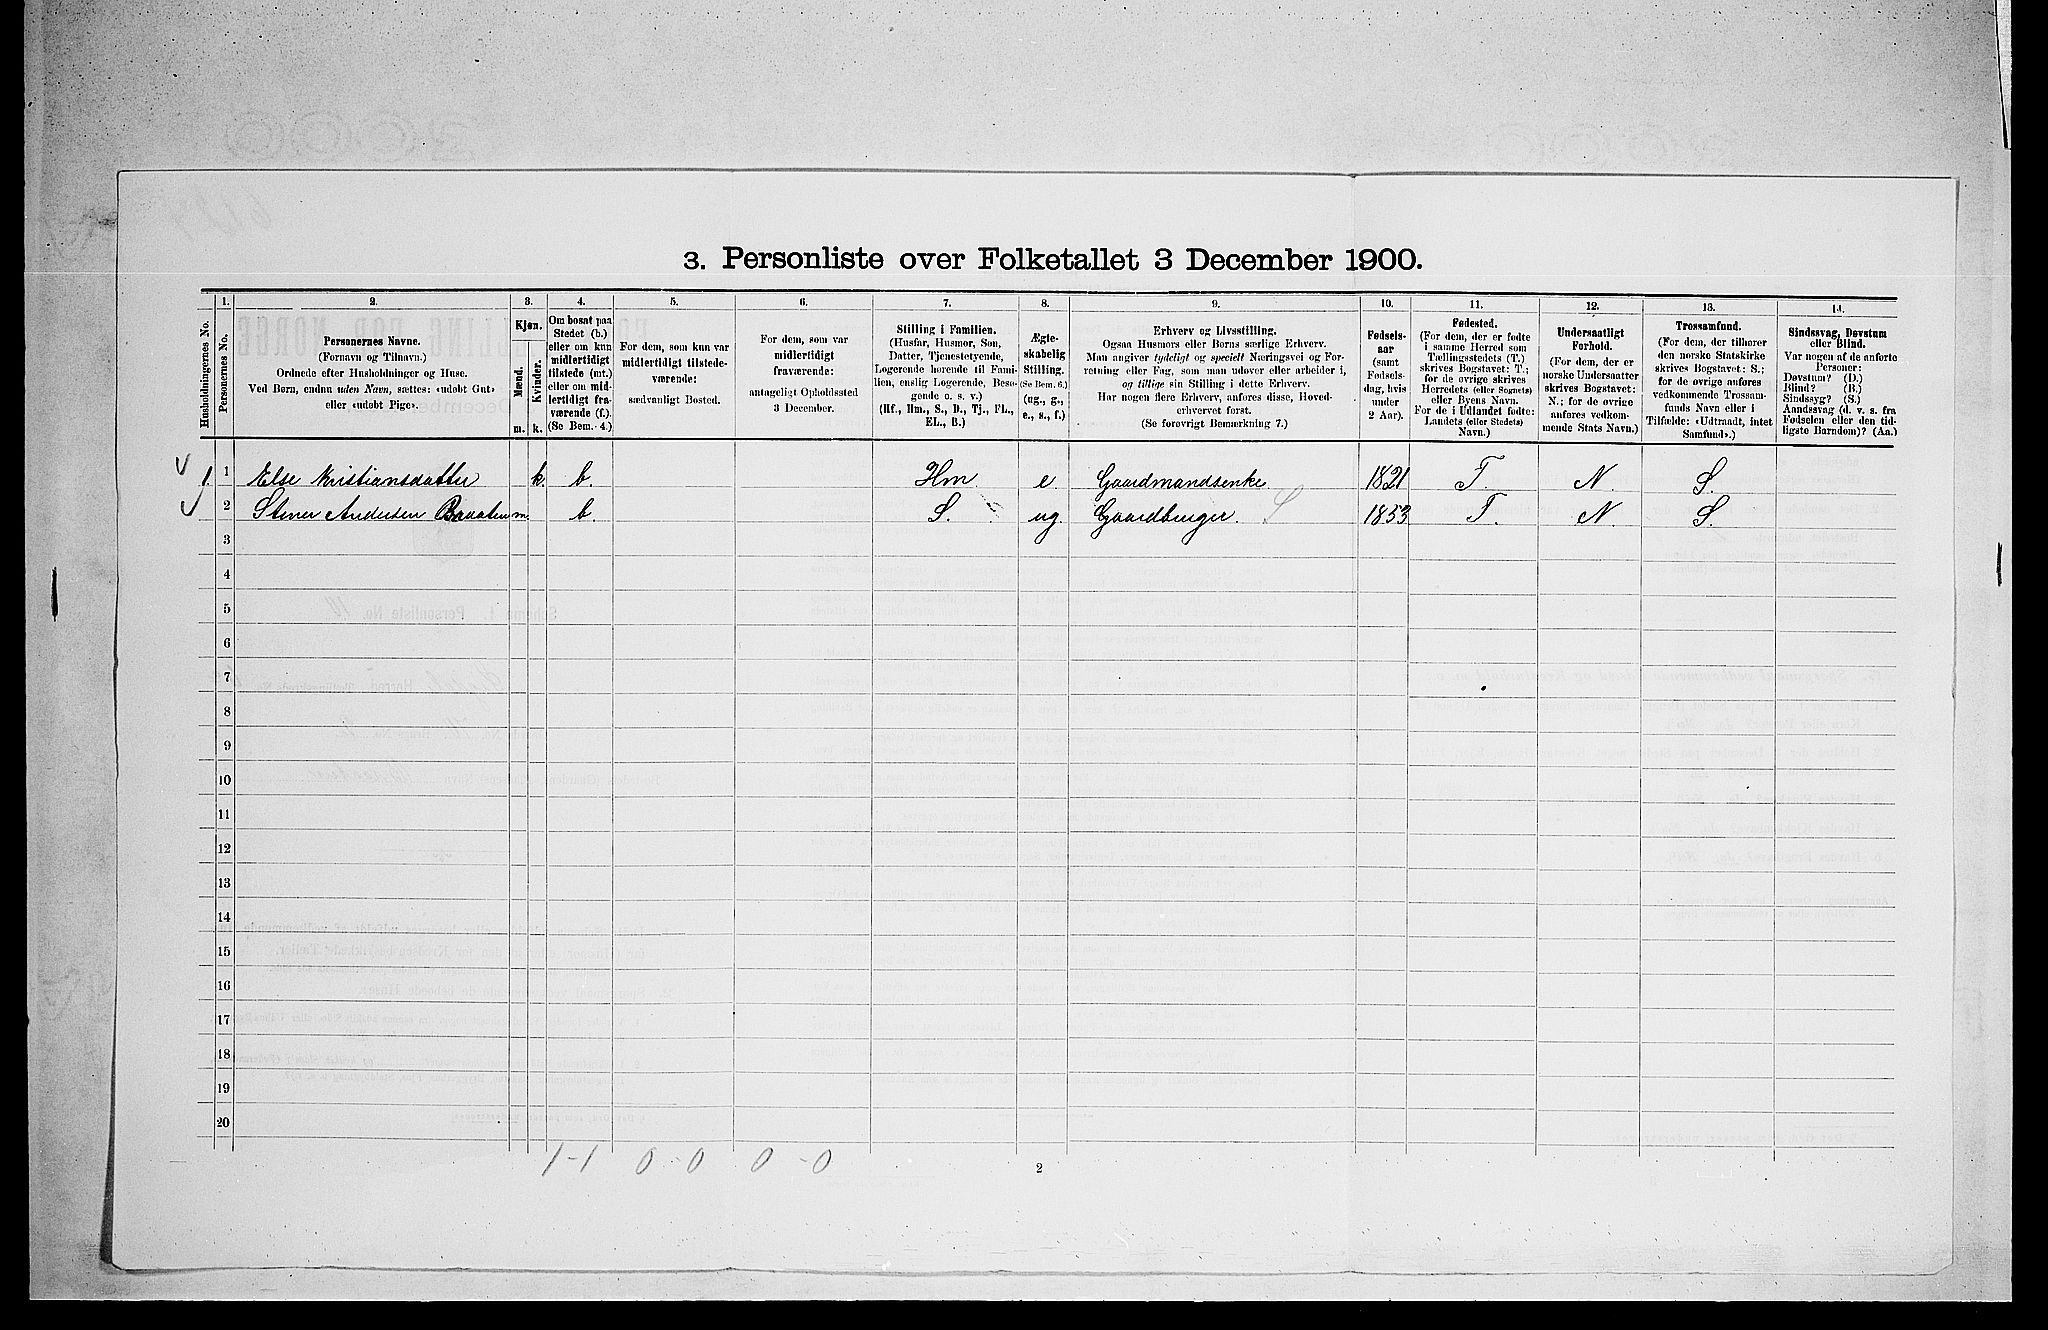 3. Personliste over Folketallet 3 December 1900.
Husholdningernes No.
1.
Personernes No.
2.
Personernes Navne.
(Fornavn og Tilnavn.)
Ordnede efter Husholdninger og Huse.
Ved Børn, endnu uden Navn, sættes: «udøbt Gut»
eller «udøbt Pige».
3.
Kjøn.
Mænd.
Kvinder.
m. k.
4.
Om bosat paa
Stedet (b.)
eller om kun
midlertidigt
tilstede (mt.)
eller om mid-
lertidigt fra-
værende (f.).
(Se Bem. 4.)
5.
For dem, som kun var
midlertidigt tilstede-
værende:
sædvanligt Bosted.
6.
For dem, som var
midlertidigt
fraværende:
antageligt Opholdssted
3 December.
7.
Stilling i Familien.
(Husfar, Husmor, Søn,
Datter, Tjenestetyende,
Logerende hørende til Fami-
lien, enslig Logerende, Besø-
gende o. s. v.)
(Hf., Hm., S., D., Tj., FL.,
EL., B.)
8.
Ægte-
skabelig
Stilling.
(Se Bem. 6.)
(ug., g.,
e., s., f.)
9.
Erhverv og Livsstilling.
Ogsaa Husmors eller Børns særlige Erhverv.
Man angiver tydeligt og specielt Næringsvei og For-
retning eller Fag, som man udøver eller arbeider i,
og tillige sin Stilling i dette Erhverv.
Har nogen flere Erhverv, anføres disse, Hoved-
erhvervet først.
(Se forøvrigt Bemærkning 7.)
10.
Fødsels-
aar
(samt
Fødsels-
dag, hvis
under
2 Aar).
11.
Fødested.
(For dem, der er fødte
i samme Herred som
Tællingsstedets (T.)
skrives Bogstavet: T.;
for de øvrige skrives
Herredets (eller Sognets)
eller Byens Navn.
For de i Udlandet fødte:
Landets (eller Stedets)
Navn.)
12.
Undersaatligt
Forhold.
(For dem, der er
norske Undersaatter
skrives Bogstavet:
N.; for de øvrige
anføres vedkom-
mende Stats Navn.)
13.
Trossamfund.
(For dem, der tilhører
den norske Statskirke
skrives Bogstavet: S.;
for de øvrige anføres
vedkommende Trossam-
funds Navn eller i
Tilfælde: «Udtraadt, intet
Samfund».)
14.
Sindssvag, Døvstum
eller Blind.
Var nogen af de anførte
Personer:
Døvstum? (D.)
Blind? (B.)
Sindssyg? (S.)
Aandssvag (d. v. s. fra
Fødselen eller den tid-
ligste Barndom)? (Aa.)
1 1 Else Kristiansdatter k. b. Hm e. Gaardmandsenke 1821 T. N. S.
2 Stener Andersen Braaten m. b. S. ug. Gaardbruger. S 1853 T. N. S.
3
4
5
6
7
8
9
10
11
12
13
14
15
16
17
18
19
20
1-1 0-0 0-0
2